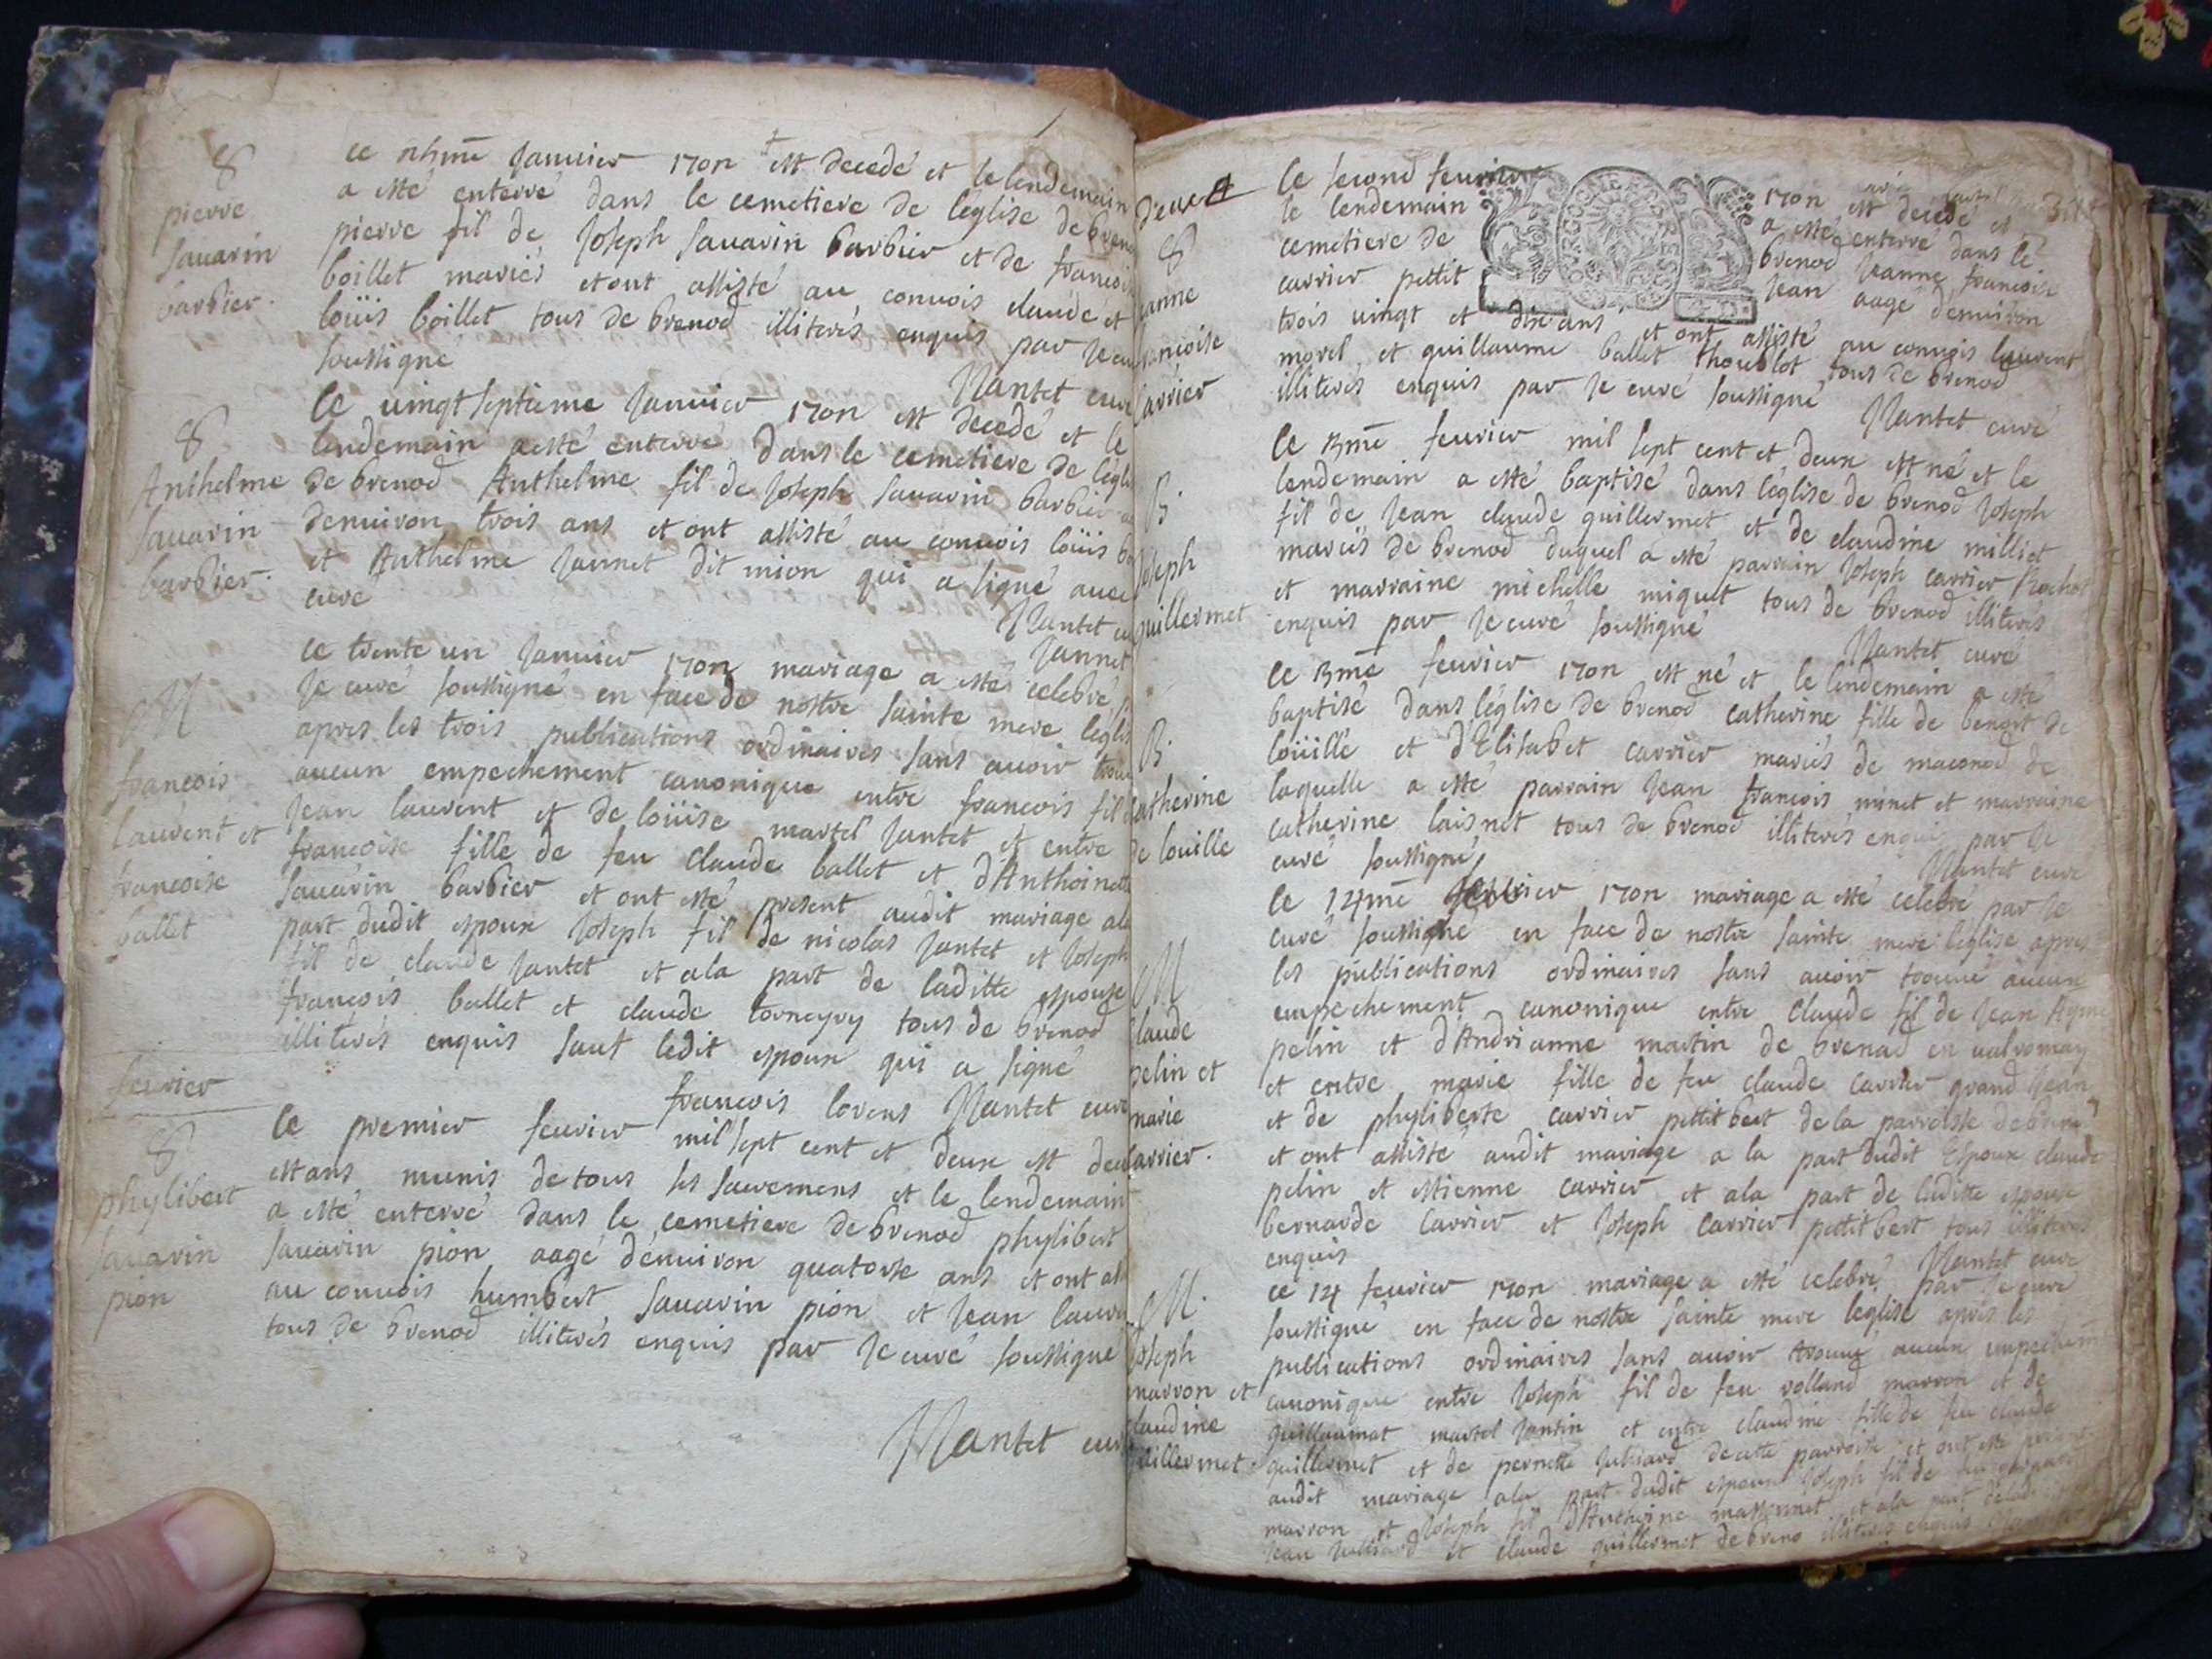 8
pierre
sauarin
barbier.
ce januier 1702 est decedé et le lendemain
a esté enterré dans le cemetiere de léglise de
pierre fil de Joseph sauarin barbier et de
boillet mariés et ont assisté au conuois claude et
loüis boillet tous de brenod illiterés enquis par
soussigné
Nantet curé
8
Anthelme
sauarin
barbier.
Ce uingt septieme januier 1702 est decedé et le
lendemain a esté enterré dans le cemetiere de
de brenod Anthelme fil de Joseph sauarin barbier
denuiron trois ans et ont assisté au conuois loüis
et Anthelme Jannet dit mion qui a signé auec
curé
Nantet
Jannet
M
francois
laurent et
francoise
ballet
ce trente un januier 1702 mariage a esté celebré
je curé soussigné en face de nostre sainte mere
apres les trois publications ordinaires sans auoir
aucun empechement canonique entre francois fil
jean laurent et de loüise martel jantet et entre
francoise fille de feu claude ballet et d'Anthoinette
sauarin barbier et ont esté present audit mariage
part dudit espoux Joseph fil de nicolas jantet et Joseph
fil de claude jantet et ala part de laditte espouse
francois ballet et claude torneyry tous de brenod
illiterés enquis sauf ledit espoux qui a signé
francois lorens Nantet curé
feurier
8
phylibert
sauarin
pion
Ce premier feurier mil sept cent et deux est
estans munis de tous les sacremens et le lendemain
a esté enterré dans le cemetiere de brenod phylibert
sauarin pion aagé dénuiron quatorse ans et ont
au conuois humbert sauarin pion et jean
tous de brenod illiterés enquis par je curé soussigné
Nantet
8
francoise
carrier
le second feurier 1702 est decedé et
le lendemain a esté enterré dans le
cemetiere de brenod jeanne francoise
carrier pettit jean aagé dénuiron
trois uingt et dix ans et ont assisté au conuois laurent
morel et guillaume ballet thoublot tous de brenod
illiterés enquis par je curé soussigné
Nantet curé
B.
Joseph
guillermet
Ce 13me feurier mil sept cent et deux est né et le
lendemain a esté baptisé dans léglise de brenod Joseph
fil de jean claude guillermet et de claudine milliet
mariés de brenod duquel a esté parrain Joseph carrier
et marraine michelle miguet tous de brenod illiterés
enquis par je curé soussigné
Nantet curé
B.
catherine
de louille
Ce 13me feurier 1702 est né et le lendemain a esté
baptisé dans léglise de brenod catherine fille de benoit de
loüille et d'Elisabet carrier mariés de maconod de
laquelle a esté parrain jean francois minet et marraine
catherine laisnet tous de brenod illiterés enquis par je
curé soussigné
Nantet curé
M
claude
pelin et
marie
carrier.
Ce 14me feurier 1702 mariage a esté celebré par je
curé soussigné en face de nostre sainte mere léglise apres
les publications ordinaires sans auoir trouué aucun
empechement canonique entre claude fil de jean
pelin et d'Andrianne martin de brenad en ualromay
et entre marie fille de feu claude carrier grand jean
et de phyliberte carrier pettit bert de la parroisse de
et ont assisté audit mariage a la part dudit Espoux claude
pelin et estienne carrier et ala part de laditte espouse
bernarde carrier et Joseph carrier pettit bert tous illiterés
enquis
Nantet curé
M.
Joseph
marron et
claudine
guillermet.
ce 14 feurier 1702 mariage a esté celebré par je curé
soussigné en face de nostre sainte mere leglise apres les
publications ordinaires sans auoir trouué aucun
canonique entre Joseph fil de feu rolland marron et de
martel jantin et entre claudine fille de feu claude
guillermet et de pernette julliard de cette parroisse et ont esté
audit mariage ala part dudit espoux Joseph fil de feu
marron et Joseph fil d'Antheine et ala part
jean julliard et claude guillermet de illiterés enquis